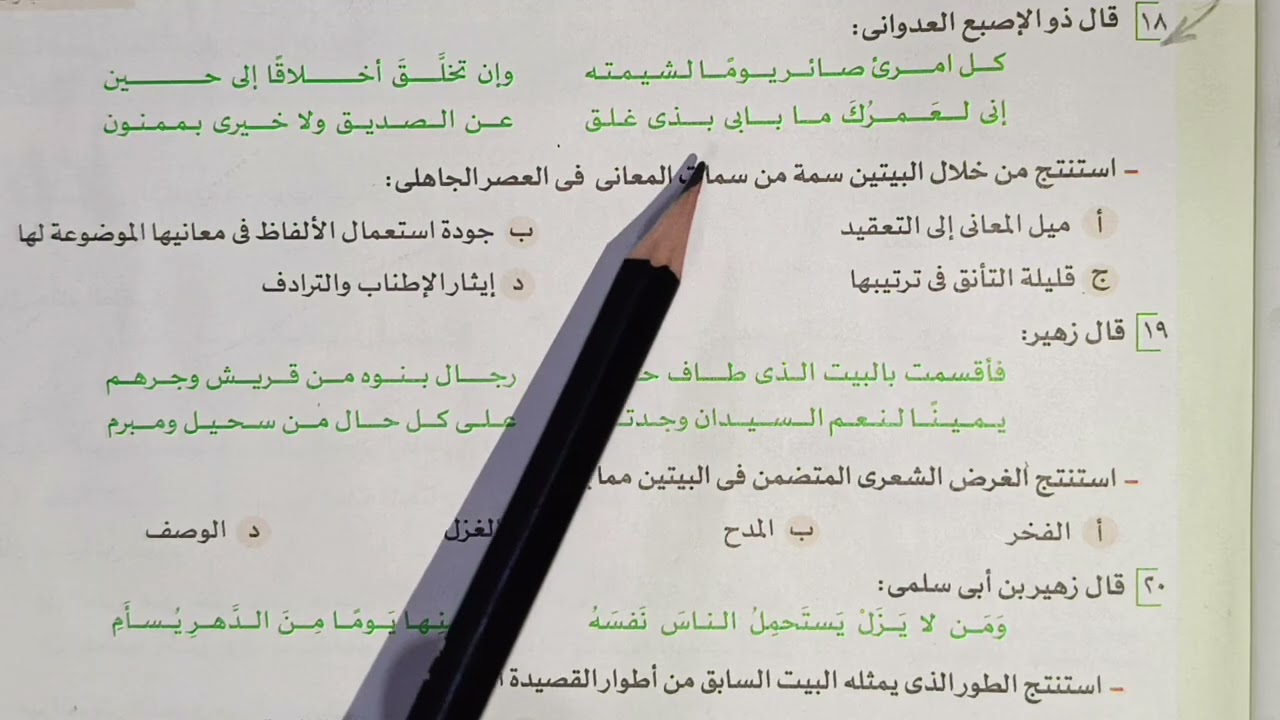 ١٨ قال ذو الإصبع العدوانى:
كل امرئ صائر يومًا لشيمته وإن تخلَّقَ أخلاقًا إلى حين
إنى لعَمرُكَ ما بابى بذى غلق عن الصديق ولا خيرى بممنون
- استنتج من خلال البيتين سمة من سمات المعانى فى العصر الجاهلى:
أ ميل المعانى إلى التعقيد ب جودة استعمال الألفاظ فى معانيها الموضوعة لها
ج قليلة التأنق فى ترتيبها د إيثار الإطناب والترادف
١٩ قال زهير:
فأقسمت بالبيت الذى طاف رجال بنوه من قريش وجرهم
يمينًا لنعم السيدان على كل حال من سحيل ومبرم
- استنتج الغرض الشعرى المتضمن فى البيتين
أ الفخر ب المدح الغزل د الوصف
٢٠ قال زهير بن أبى سلمى:
وَمَن لا يَزَلْ يَستَحمِلُ الناسَ نَفسَهُ يَومًا مِنَ الدَّهرِ يُسأَمِ
- استنتج الطور الذى يمثله البيت السابق من أطوار القصيدة